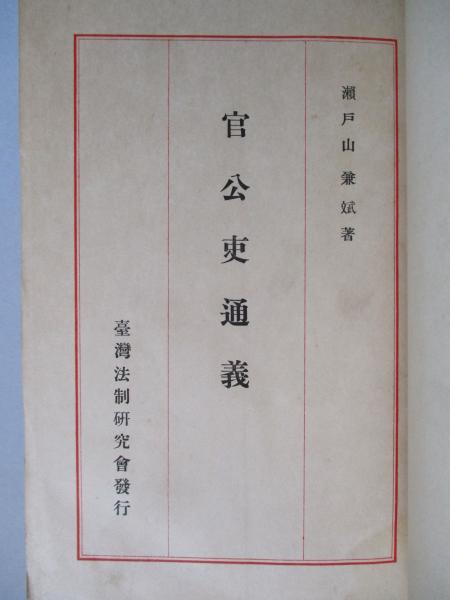 瀨戸山兼斌著
官公吏通義
臺灣法制硏究會發行